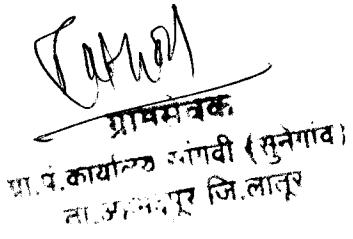 ग्रामसेवक
ग्रा.पं.कार्यालय सांगवी (सुनेगांव)
ता. अहमदपूर जि.लातूर